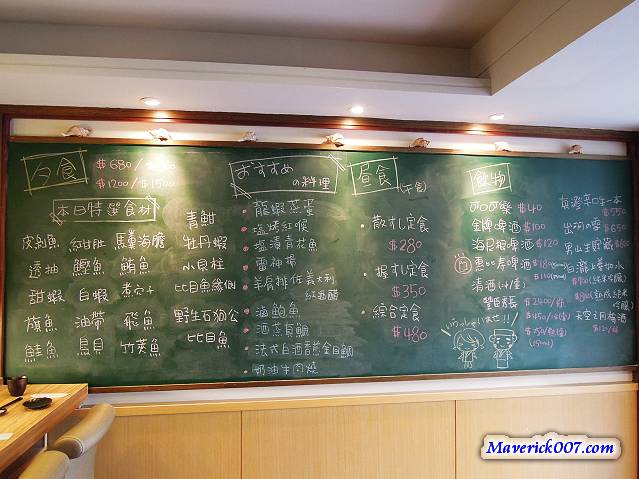 夕食
$680/
$1200/$1500
本日特選食材
紅甘胙 馬糞海膽
透抽 鰹魚 鮪魚
甜蝦 白蝦 煮穴子
旗魚 油帶 飛魚
鮭魚 鳥貝 竹莢魚
青魽
牡丹蝦
小貝柱
比目魚緣側
野生石狗公
比目魚
おすすめ
の料理
龍蝦蒸蛋
塩烤紅喉
塩漬青花魚
雷神揚
羊肩排佐義大利
紅酒醋
滷鮑魚
酒蒸貝鯛
法式白酒
奶油牛肉燒
昼食
(午食)
散すし定食
$280
握すし定食
$350
綜合定食
$480
飲物
可口可樂 $40
金牌啤酒 $100
海尼根啤酒 $120
惠比壽啤酒 $180
清酒
$2400/瓶
$450/
$250/
(150ml)
いらっしゃいませ!!
真澄 生一本
$550
出羽の雪
$650
男山生貯藏 $600
上善如水
天空之月梅酒
$120/杯
Maverick007.com